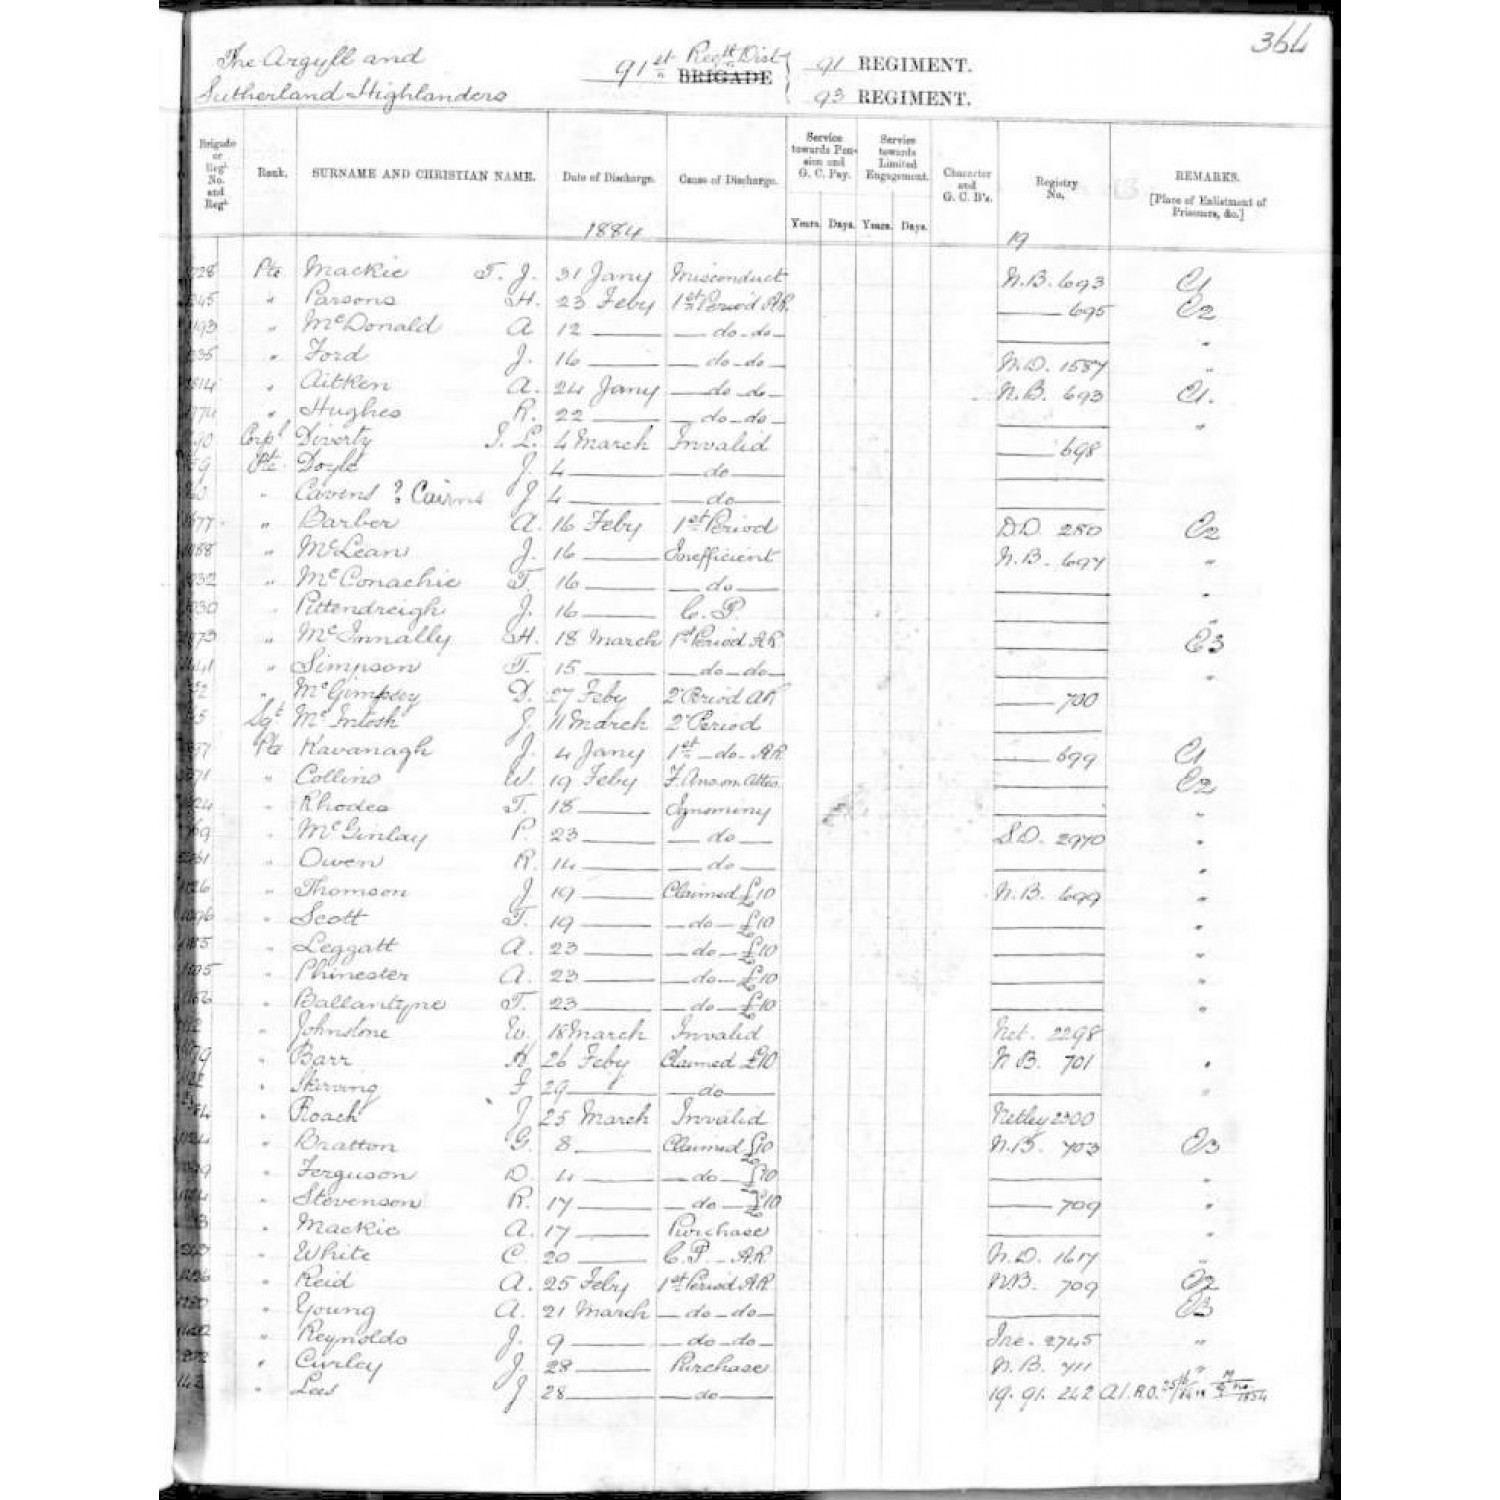 364
The Argyll and 91st Regtl Dist 91 REGIMENT.
Sutherland Highlanders BRIGADE 93 REGIMENT.
Brigade or Regtl No. and Regt Rank. SURNAME AND CHRISTIAN NAME. Date of Discharge. Cause of Discharge. Service towards Pension and G. C. Pay. Service towards Limited Engagement. Character and G. C. B's. Registry No. REMARKS. [Place of Enlistment of Prisoners, &c.]
Years. Days. Years. Days.
1884 19
Pte Mackie T. J. 31 Jany Misconduct N.B. 693 C1
" Parsons H. 23 Feby 1st Period A.R. — 695 C2
" McDonald A 12 — do-do — "
" Ford J. 16 — do-do N.D. 1587 "
" Aitken A. 24 Jany — do do N.B. 693 C1.
" Hughes R. 22 — do-do — "
Corpl Diverty J. L. 4 March Invalid — 698
Pte Doyle J. 4 — do —
" Cavens ? Cairns J 4 — do —
" Barber A. 16 Feby 1st Period D.D. 280 C2
" McLean J. 16 — Inefficient N.B. 697 "
" McConachie T. 16 — do — "
" Pittendreigh J. 16 — C.P. — "
" McInnally H. 18 March 1st Period A.R. — C3
" Simpson T. 15 — do-do — "
" McGimpsey D. 27 Feby 2d Period A.R — 700
Sgt McIntosh J. 11 March 2d Period —
Pte Kavanagh J. 4 Jany 1st do- A.R. — 699 C1
" Collins W. 19 Feby F. Ans. on Attes. — C2
" Rhodes T. 18 — Ignominy — "
" McGinlay P. 23 — do — S.D. 2970 "
" Owen R. 14 — do — "
" Thomson J 19 — Claimed £10 N.B. 699 "
" Scott T. 19 — do — £10 — "
" Leggatt A. 23 — do — £10 — "
" Phinester A. 23 — do — £10 — "
" Ballantyne T. 23 — do — £10 — "
" Johnstone W. 18 March Invalid Net. 2298
" Barr H 26 Feby Claimed £10 N.B. 701 "
" Skirving J 29 — do — "
" Roach J 25 March Invalid Netley 2300
" Bratton G. 8 — Claimed £10 N.B. 703 C3
" Ferguson D. 4 — do £10 — "
" Stevenson R. 17 — do — £10 — 709 "
" Mackie A. 17 — Purchase — "
" White C. 20 — C.P. - A.R. N.D. 1617 "
" Reid A. 25 Feby 1st Period A.R. N.B. 709 C2
" Young A. 21 March — do-do — C3
" Reynolds J. 9 — do-do Ine. 2745 "
" Curley J. 28 — Purchase N.B. 711 "
" Lees J 28 — do 19. 91. 242